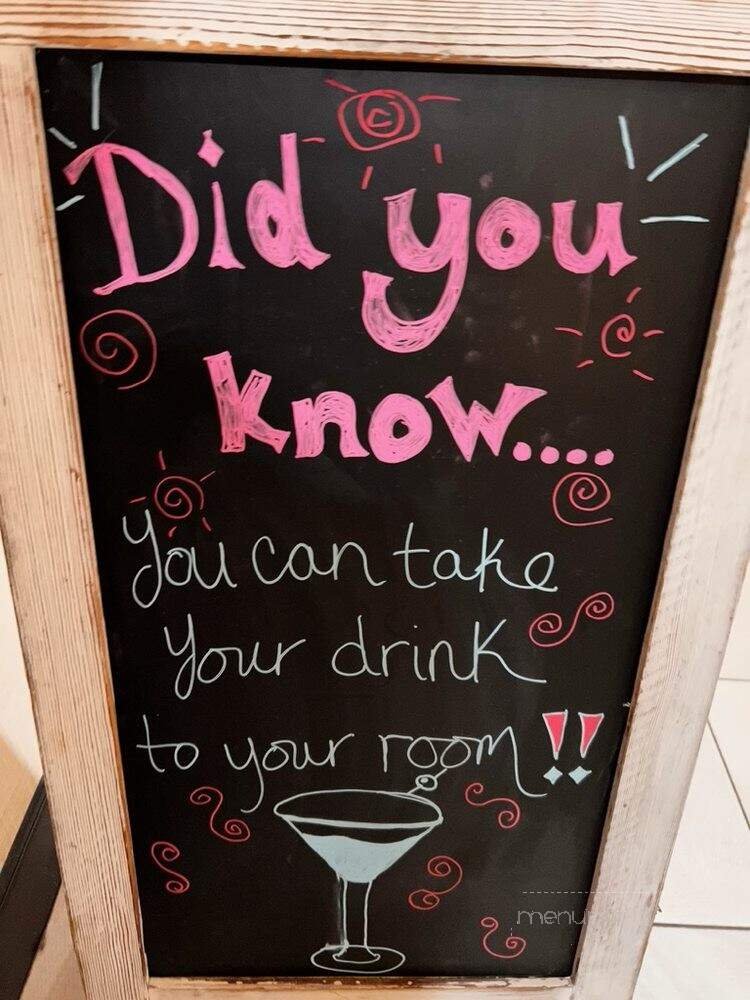 Did you
know....
You can take
your drink
to your room!!
menu